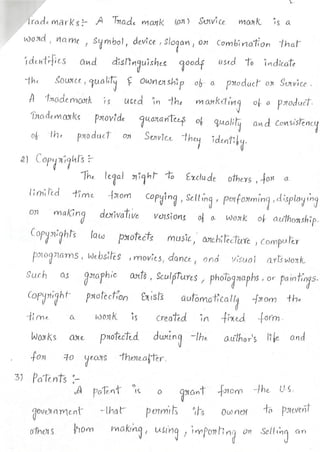 Trade marks :- A Trade mark (or) Service mark is a
word, name, symbol, device, slogan, or combination that
identifies and distinguishes goods used to indicate
the source, quality & ownership of a product or Service.
A trademark is used in the marketing of a product.
Trademarks provide guarantees of quality and consistency
of the product or Service they identify.
2) Copyrights :-
The legal right to Exclude others, for a
limited time from copying, selling, performing, displaying
or making derivative versions of a work of authorship.
Copyrights law protects music, architecture, computer
programs, websites, movies, dance, and visual artswork.
Such as graphic arts, Sculptures, photographs, or paintings.
Copyright protection Exists automatically from the
time a work is created in fixed form.
Works are protected during the author's life and
for 70 years thereafter.
3) Patents :-
A patent is a grant from the U.S.
government that permits its owner to prevent
others from making, using, importing or Selling an